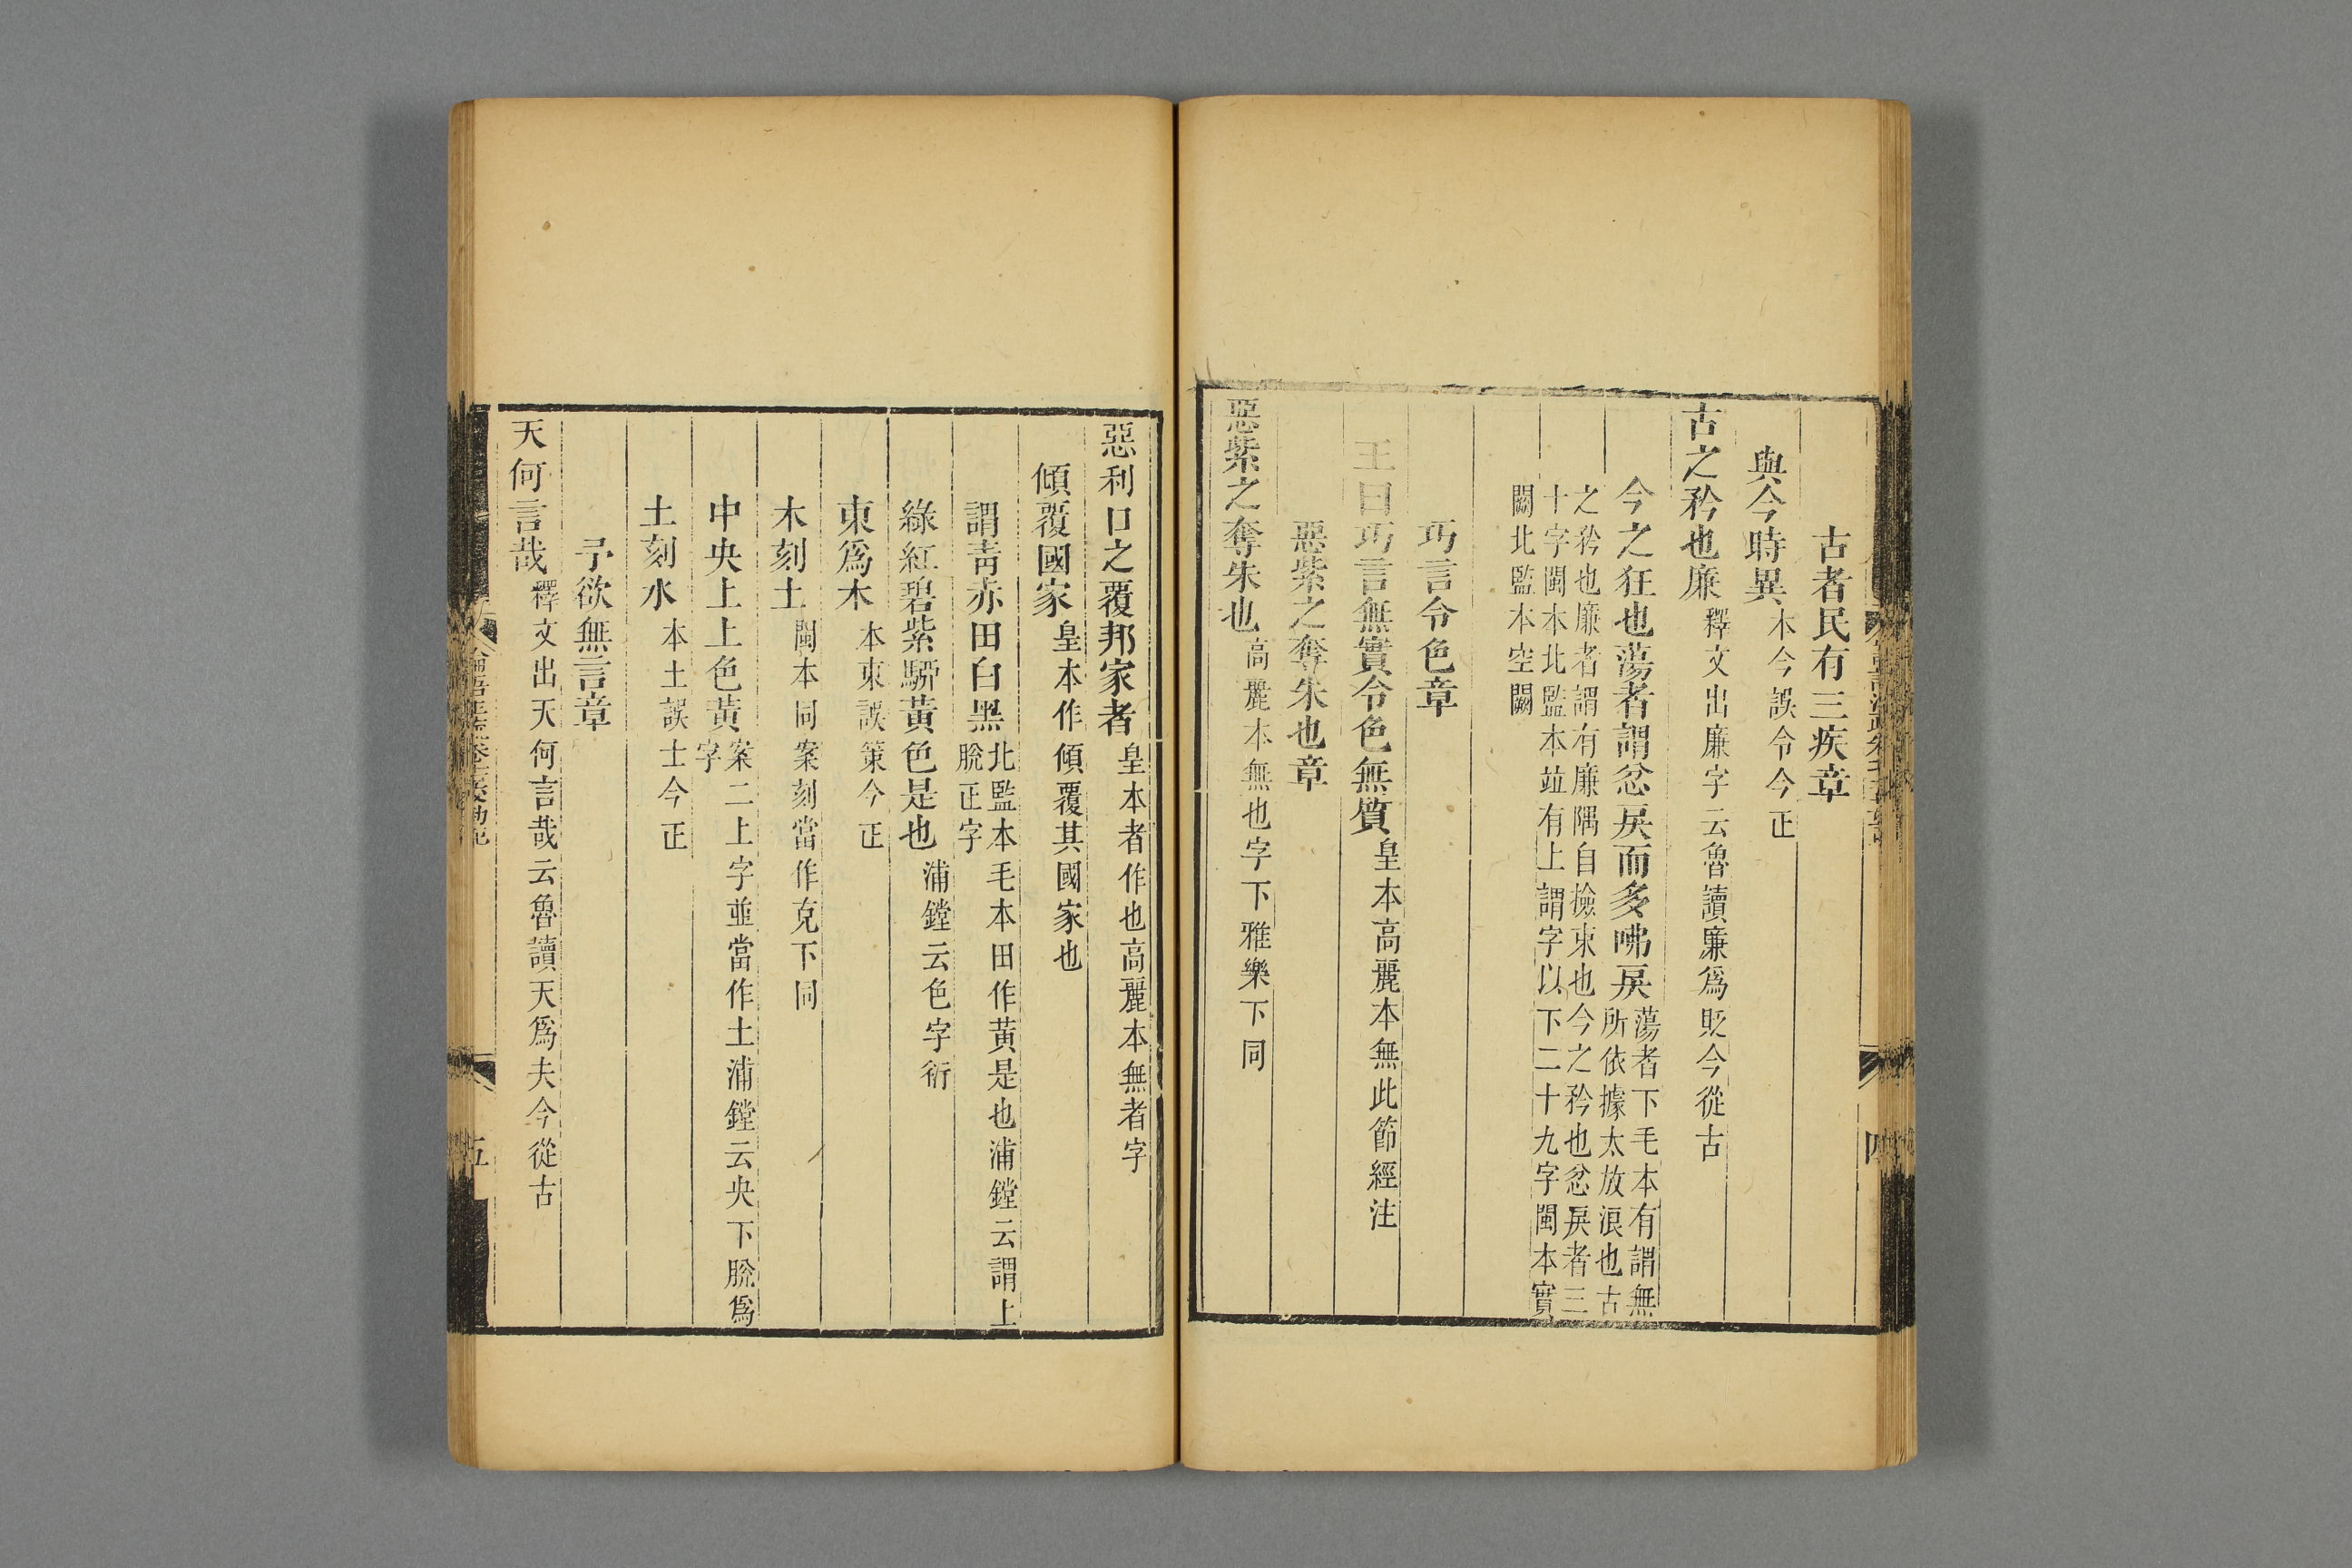 古者民有三疾章
與今時異本今誤令今正
古之矜也廉釋文出廉字云魯讀廉爲貶今從古
今之狂也蕩者謂忿戾而多咈戾蕩者下毛本有謂無
所依據太放浪也古
之矜也廉者謂有廉隅自撿束也今之矜也忿戾者三
十字閩本北監本竝有上謂字以下二十九字閩本實
闕北監本空闕
巧言令色章
王曰巧言無實令色無質皇本高麗本無此節經注
惡紫之奪朱也章
惡紫之奪朱也高麗本無也字下雅樂下同
四
惡利口之覆邦家者皇本者作也高麗本無者字
傾覆國家皇本作傾覆其國家也
謂青赤田白黑北監本毛本田作黃是也浦鏜云謂上
脫正字
綠紅碧紫騮黃色是也浦鏜云色字衍
東爲木本東誤策今正
木刻土閩本同案刻當作克下同
中央上上色黃案二上字並當作土浦鏜云央下脫爲
字
土刻水本土誤士今正
予欲無言章
天何言哉釋文出天何言哉云魯讀天爲夫今從古
五